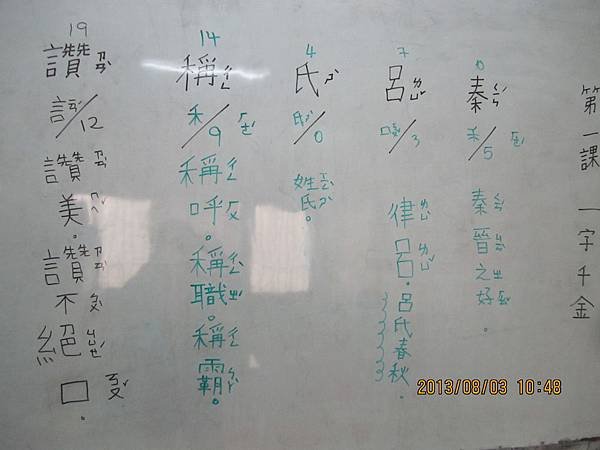 第一課 一字千金
10
秦ㄑㄧㄣˊ
禾/5
秦ㄑㄧㄣˊ晉ㄐㄧㄣˋ之ㄓ好ㄏㄠˇ。
7
呂ㄌㄩˇ
口/3
律ㄌㄩˋ呂ㄌㄩˇ。呂氏春秋。
4
氏ㄕˋ
氏/0
姓ㄒㄧㄥˋ氏ㄕˋ。
14
稱ㄔㄥ
禾/9
稱ㄔㄥ呼ㄏㄨ。稱ㄔㄥˋ職ㄓˊ。稱ㄔㄥ霸ㄅㄚˋ。
19
讚ㄗㄢˋ
言/12
讚ㄗㄢˋ美ㄇㄟˇ。讚ㄗㄢˋ不ㄅㄨˋ絕ㄐㄩㄝˊ口ㄎㄡˇ。
2013/08/03 10:48